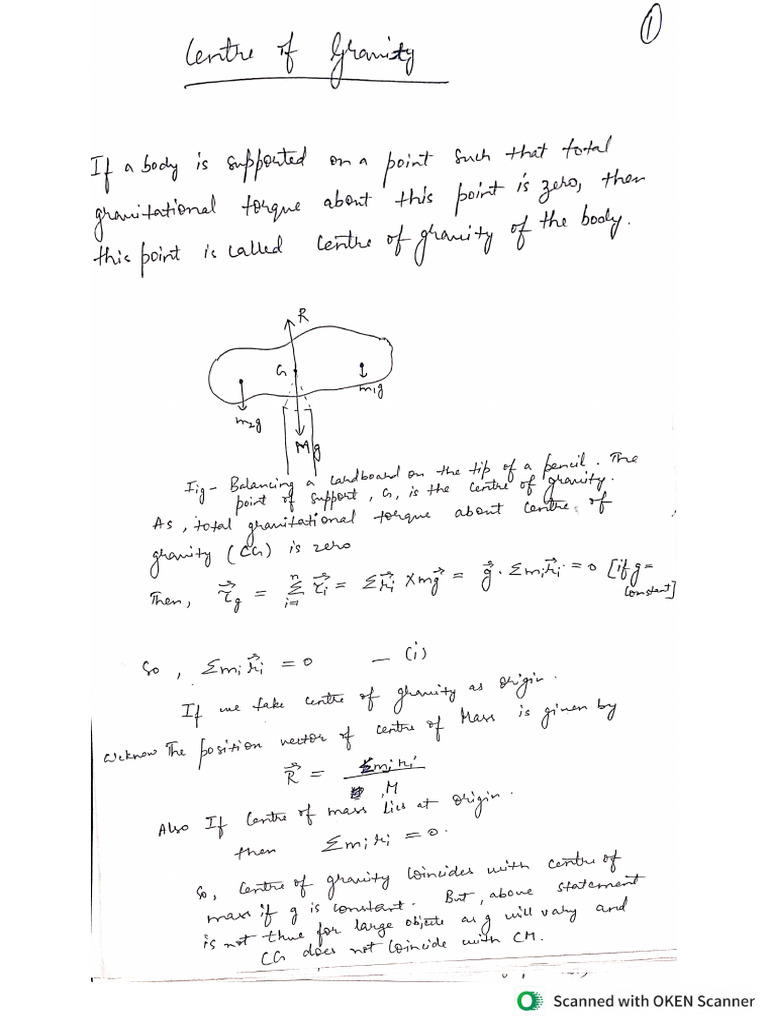 1
Centre of Gravity
If a body is supported on a point such that total
gravitational torque about this point is zero, then
this point is called centre of gravity of the body.
R
G
m₁g
m₂g
Mg
Fig- Balancing a cardboard on the tip of a pencil. The
point of support, G, is the centre of gravity.
As, total gravitational torque about centre of
gravity (CG) is zero
Then, τ⃗g = Σⁿᵢ₌₁ τ⃗ᵢ = Σr⃗ᵢ × mg⃗ = g⃗ · Σmᵢr⃗ᵢ = 0 [if g =
constant]
So, Σmᵢr⃗ᵢ = 0 — (i)
If we take centre of gravity as origin.
We know The position vector of centre of Mass is given by
R⃗ = Σmᵢrᵢ
M
Also If centre of mass lies at origin.
then Σmᵢrᵢ = 0.
So, centre of gravity coincides with centre of
mass if g is constant. But, above statement
is not true for large objects as g will vary and
CG does not coincide with CM.
Scanned with OKEN Scanner